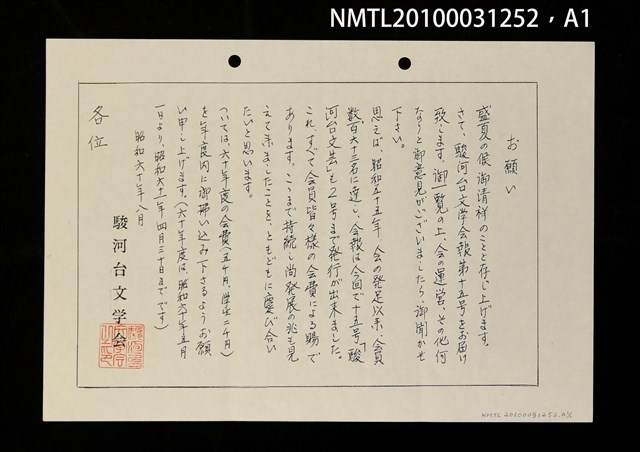 NMTL20100031252，A1
お願い
盛夏の候 御清祥のことと存じ上げます。
さて、駿河台文学会報第十五号をお届け
致します。御一覧の上、会の運営、その他何
なりと御意見がございましたら、御聞かせ
下さい。
思えば、昭和五十五年、会の発足以来、会員
数百六十三名に達し、会報は今回で十五号、「駿
河台文芸」も2号まで発行が出来ました。
これ、すべて会員皆々様の会費による賜で
あります。ここまで持続し尚発展の兆も見
えて来ましたことを、ともどもに慶び合い
たいと思います。
ついては、六十年度の会費(五千円、学生二千円)
を年度内に御拂い込み下さるようお願
い申し上げます。(六十年度は、昭和六十年五月
一日より、昭和六十一年四月三十日までです)
昭和六十年八月
駿河台文学会
各位
NMTL20100031252.A1/1